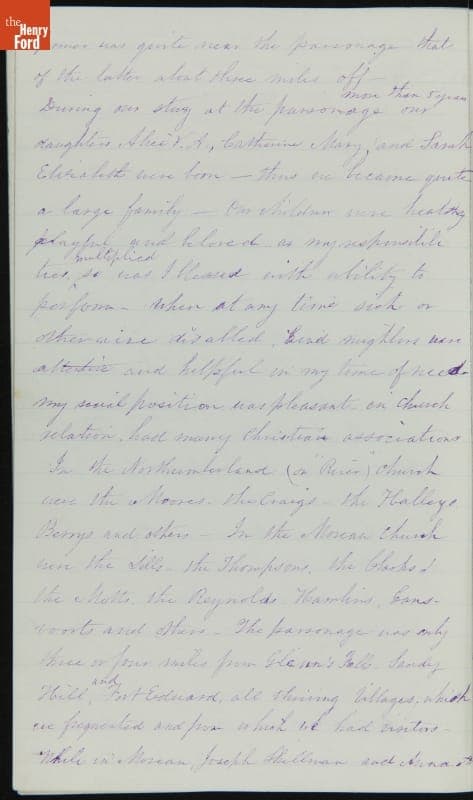 the
Henry
Ford
was quite near the parsonage that
of the latter about three miles off
more than 5 years
During our stay at the parsonage our
daughters Alice K. L., Catherine Mary, and Sarah
Elizabeth were born — thus we became quite
a large family — Our children were healthy
playful, and beloved as my responsibili
multiplied
ties, so was I blessed with ability to
perform — When at any time sick or
otherwise disabled, kind neighbors were
attentive and helpful in my time of need
my social position was pleasant, in church
relation, had many Christian associations
In the Northumberland (or "River") Church
were the Moores — the Craigs — the
Berrys and others — In the Moreau Church
were the the Thompsons, the Clarks
the Motts, the Reynolds Hamlins, Gans-
voorts and others — The parsonage was only
three or four miles from Glenn's Falls, Sandy
and
Hill, Fort Edward, all thriving Villages, which
we frequented and from which we had visitors —
While in Moreau, Joseph Skillman and Anna